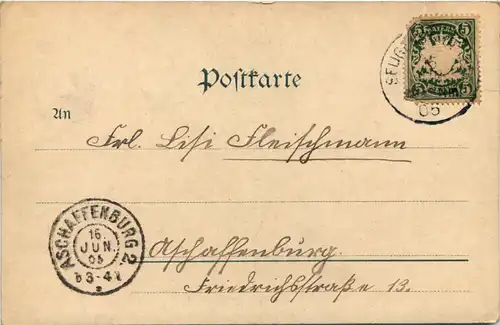 BAYERN
5 5
PFENNIG
05
Postkarte
An
Frl. Lisi Fleischmann
Aschaffenburg.
Friedrichstraße 13.
ASCHAFFENBURG 2
16.
JUN.
05